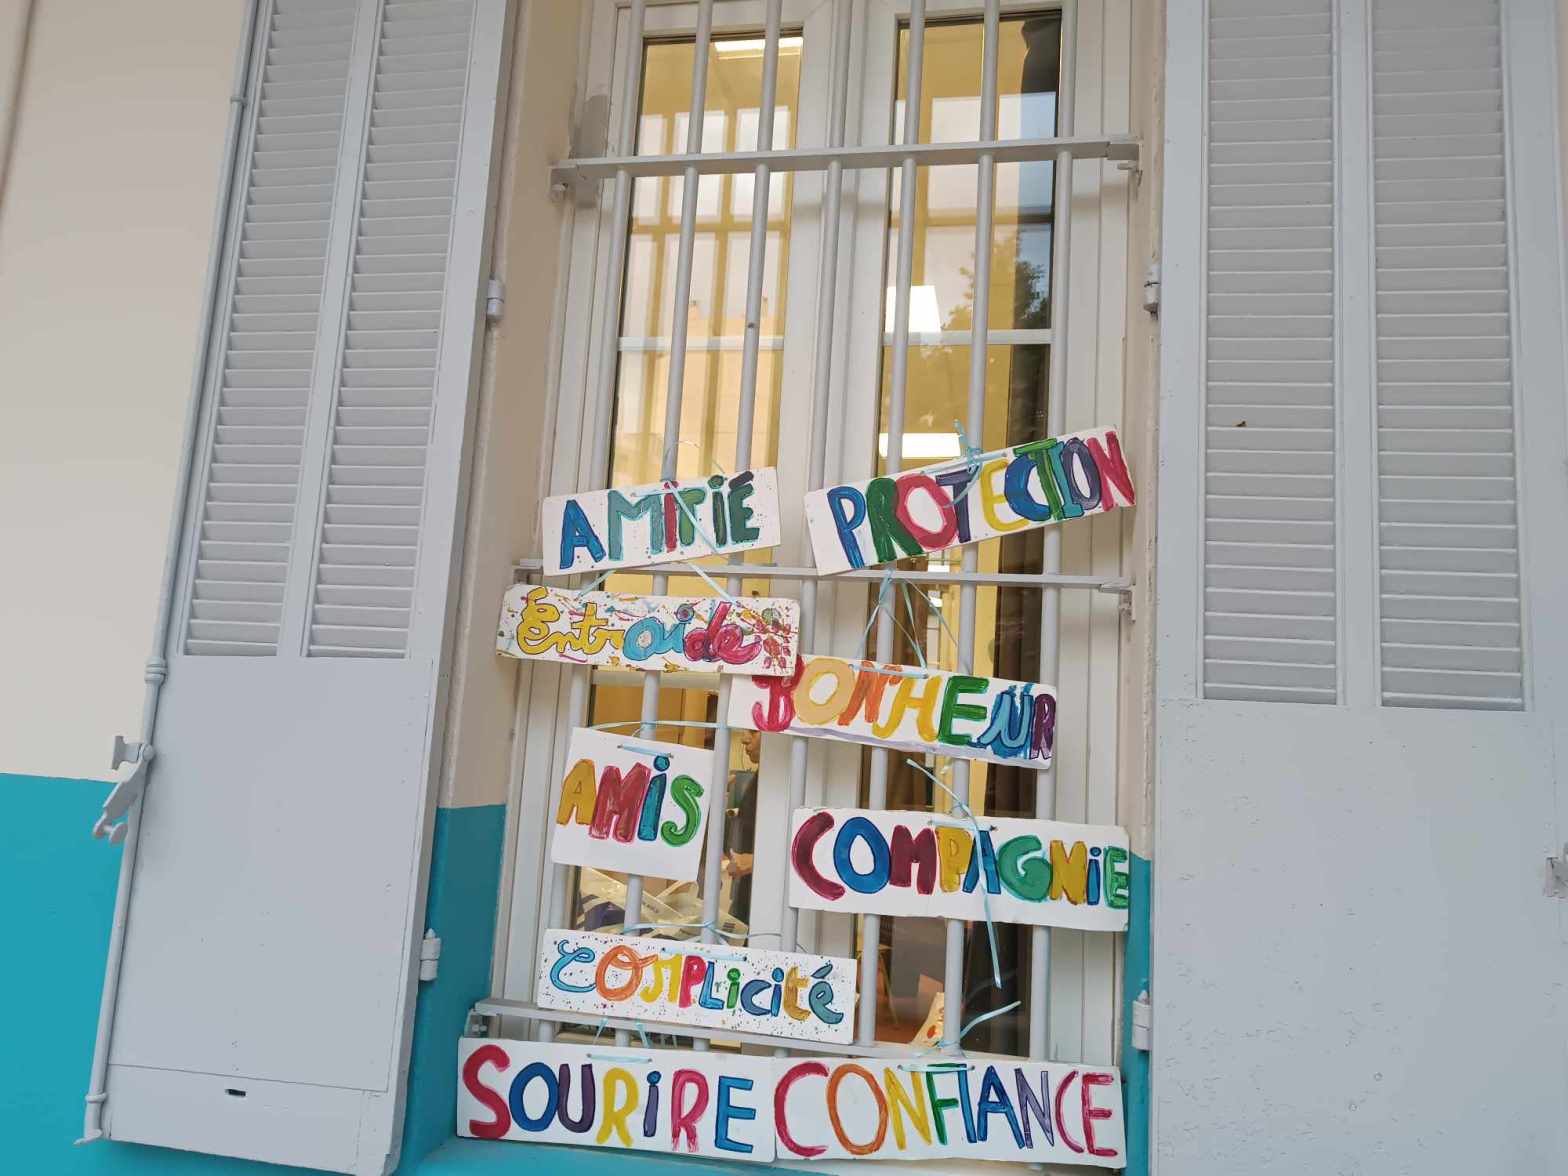 AMITIÉ
PROTECTION
Entraide
BONHEUR
AMIS
COMPAGNIE
COMPLICITÉ
SOURIRE
CONFIANCE